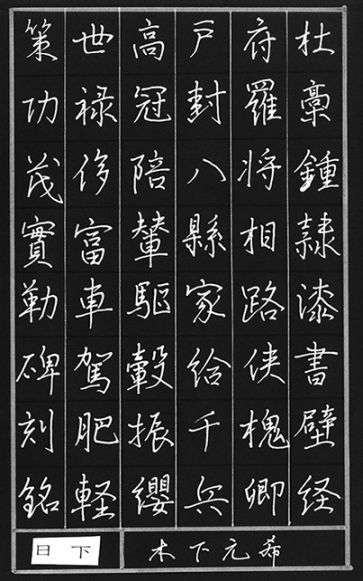 杜藁鍾隷漆書壁経
府羅将相路侠槐卿
戸封八縣家給千兵
高冠陪輦駆轂振纓
世禄侈富車駕肥軽
策功茂實勒碑刻銘
木下元希
日下